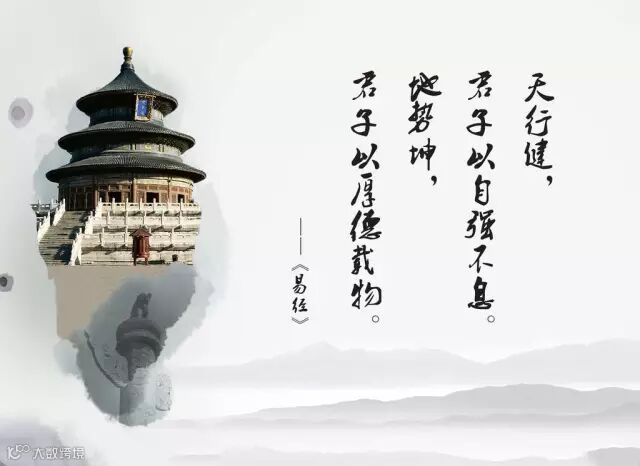 天行健，
君子以自强不息。
地势坤，
君子以厚德载物。
——《易经》
大数跨境